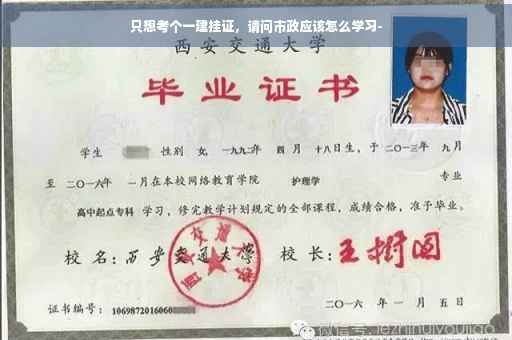 只想考个一建挂证，请问市政应该怎么学习-
西安交通大学
毕业证书
学生 性别 女，一九九二年 四 月 十八日生，于 二〇一三年 九月
至 二〇一六年 一月在本校网络教育学院 护理学 专业
高中起点专科 学习，修完教学计划规定的全部课程，成绩合格，准予毕业。
校 名：西安交通大学 校 长：王树国
证书编号：1069872016060
二〇一六 年 一 月 五 日
微信号: lezhinuiyoujiao